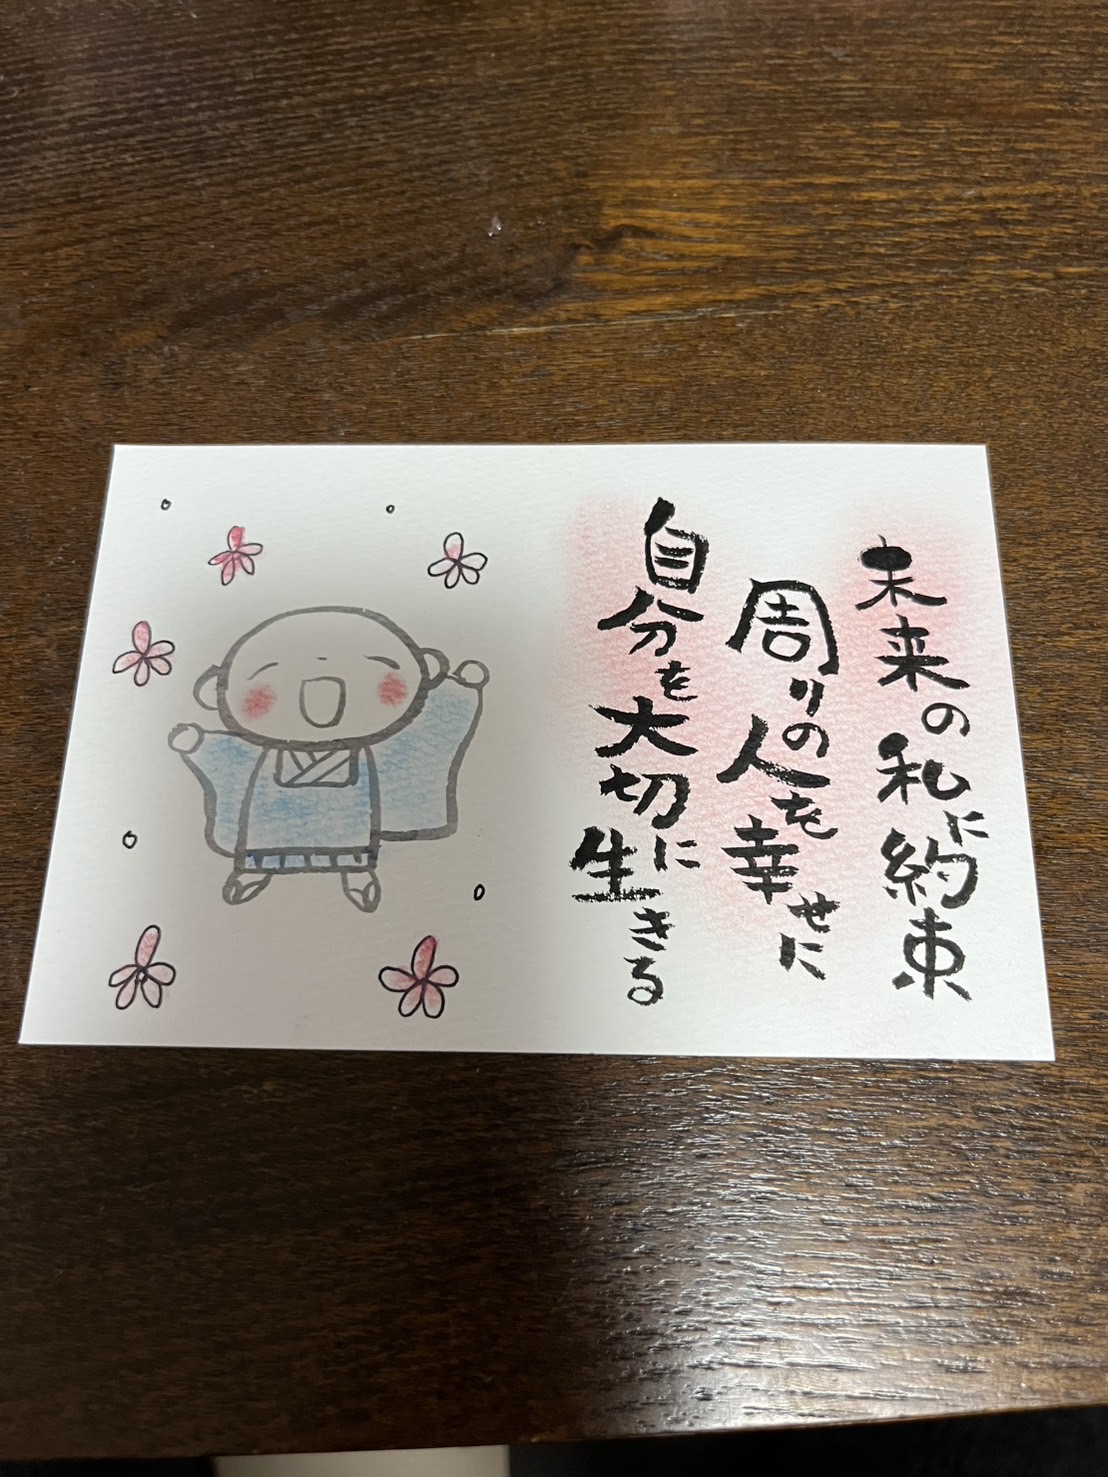 未来の私に約束
周りの人を幸せに
自分を大切に生きる